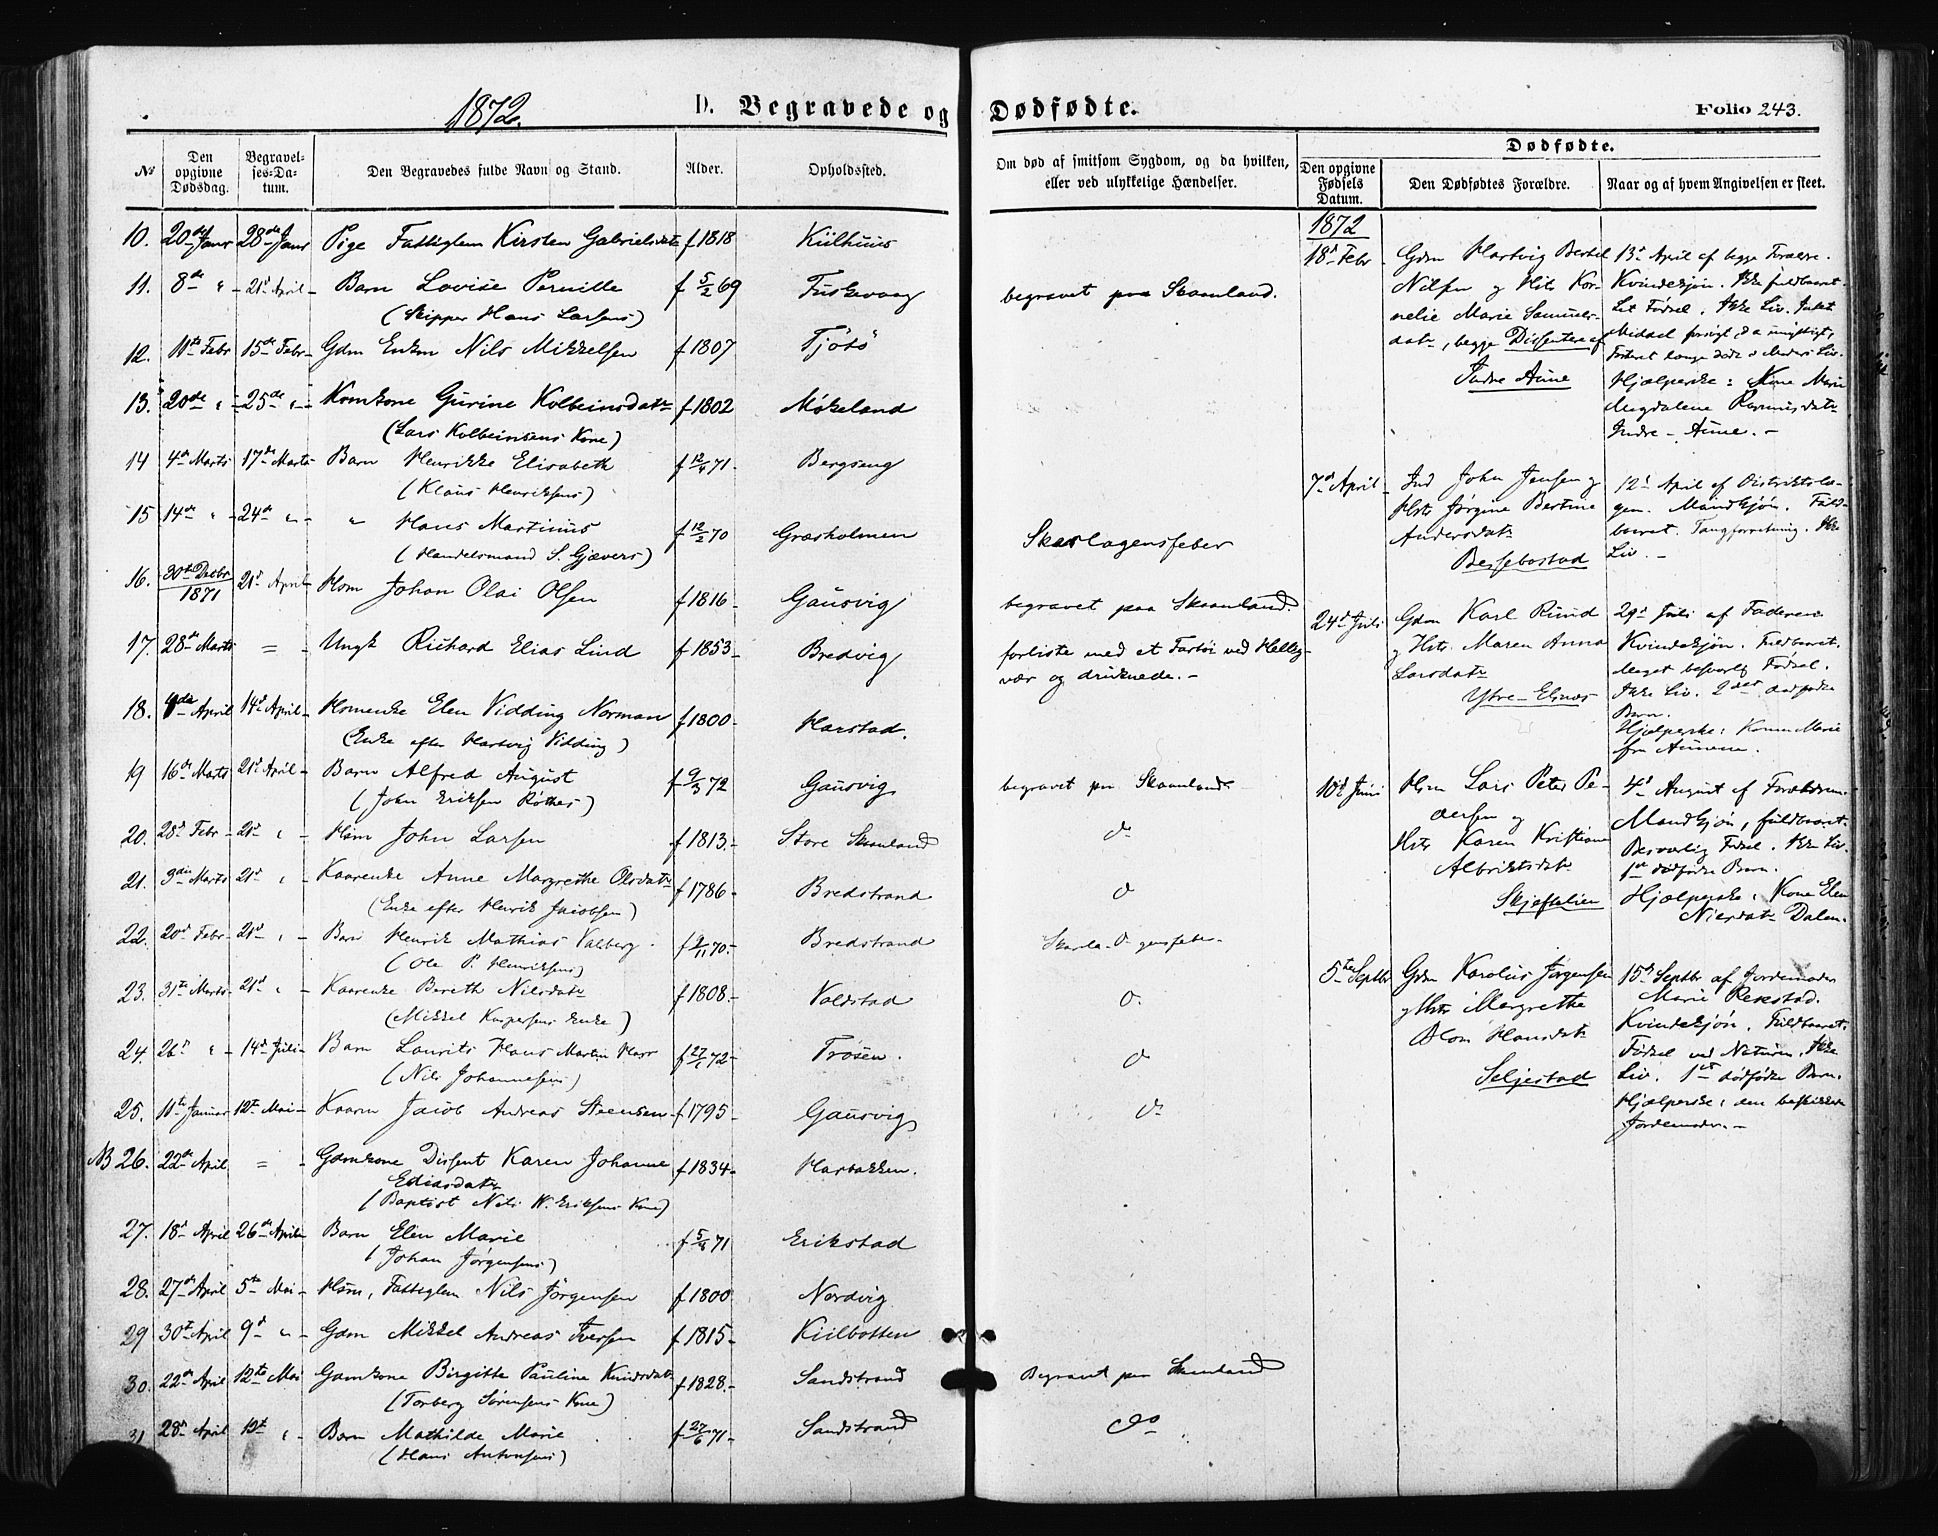 1872.
D. Begravede og
Dødfødte.
Folio 243.
Nº
Den opgivne Dødsdag.
Begravelses-Datum.
Den Begravedes fulde Navn og Stand.
Alder.
Opholdssted.
Om død af smitsom Sygdom, og da hvilken, eller ved ulykkelige Hændelser.
Dødfødte.
Den opgivne Fødsels Datum.
Den Dødfødtes Forældre.
Naar og af hvem Angivelsen er skeet.
10. 20de Janr 28de Janr Pige Fattiglem Kirsten Gabrielsdatr f 1818 Kiilhuus
11. 8de " 21d April Barn Lovise Pernille f 5/2 69 Fuskevaag begravet paa Skaanland.
(Skipper Hans Larsens)
12. 11te Febr 15de Febr Gdm Enkm Nils Mikkelsen f 1807 Tjøtø
13. 20de " 25de " Komkone Gurine Kolbeinsdatr f 1802 Møkeland
(Lars Kolbeinsens Kone)
14 4de Marts 17de Marts Barn Henrikke Elisabeth f 12/4 71. Bergseng
(Klaus Henriksens)
15 14de " 24de " " Hans Martinus f 12/2 70 Græsholmen Skarlagensfeber
(Handelsmand S. Gjævers)
16. 30te Decbr 1871 21d April Hsm Johan Olai Olsen f 1816 Gausvig begravet paa Skaanland
17. 28de Marts = Ungk Richard Elias Lind f 1853 Bredvig forliste med et Fartøi ved Hellig-
vær og druknede.
18. April 14d April Hsmenke Elen Vidding Norman f 1800 Harstad.
(Enke efter Hartvig Vidding)
19 16de Marts 21d April Barn Alfred August f 9/3 72 Gausvig begravet paa Skaanland
(John Eriksen Røkkes)
20. 28d Febr 21d " Hsm John Larsen f 1813. Store Skaanland do
21. 3die Marts 21d " Kaarenke Anne Margrethe Olsdatr f 1786 Bredstrand do
(Enke efter Henrik Jacobsen)
22. 20d Febr 21d " Barn Henrik Mathias Valberg. f 9/11 70. Bredstrand Skarla-do-gensfeber
(Ole P. Henriksens)
23. 31te Marts 21d " Kaarenke Bereth Nilsdatr f 1808. Voldstad do
(Mikkel Kaspersens Enke)
24. 26d " 14d Juli Barn Laurits Hans Martin f 27/1 72 Trøsen. do
(Nils Johannesens)
25. 11te Januar 12te Mai Kaarm Jacob Andreas Steensen f 1795 Gausvig do
NB 26. 22de April = Gdmkone Dissent Karen Johanne f 1834 Harbakken.
Ediasdatr
(Baptist Nils W. Eriksens Kone)
27. 18d April 26de April Barn Elen Marie f 5/4 71 Erikstad
(Johan Jørgensens)
28. 27de April 5te Mai Hsm, Fattiglem Nils Jørgensen f 1800 Nordvig
29 30te April 9d " Gdm Mikkel Andreas Iversen f 1815 Kiilbotten
30. 22de April 12te Mai Gdmkone Birgitte Pauline Knudsdatr f 1828. Sandstrand Begravet paa Skaanland
(Torberg Sørensens Kone)
31 28d April 12te " Barn Mathilde Marie f 27/6 71 Sandstrand do
(Hans Antonsens)
1872
18d Febr
Gdm Hartvig Bertel
Nilsen og Hst Kor-
nelie Marie Samuels-
datr, begge Dissentere af
Indre Aune
13d April af begge Forældre.
Kvindekjøn. Ikke fuldbaaret.
Let Fødsel. Ikke Liv. Intet
Middel forsøgt, da unyttigt,
Fosteret længe død i Moders Liv.
Hjælperske: Kone Marie
Magdalene Rasmusdatr
Indre-Aune.
7de April
Ind John Jensen og
Hst Jørgine Bertine
Andersdatr
Bessebostad
12d April af Distriktslæ-
gen. Mandkjøn. Fuld-
baaret. Tangforretning. Ikke
Liv.
24d Juli
Gdm Karl Ruud
og Hst. Maren Anna
Larsdatr
Ytre-Elgnæs
29d Juli af Faderen
Kvindekjøn. Fuldbaaret.
Meget besværlig Fødsel.
Ikke Liv. 2det dødfødte
Barn.
Hjælperske: Konen Marie
fra Aunene.
10d Juni
Hsm Lars Peter Pe-
dersen og
Hst Karen Kristiane
Albriktsdatr
Skjæftelien
4d August af Forældrene.
Mandkjøn, fuldbaaret.
Besværlig Fødsel. Ikke Liv.
1ste dødfødte Barn.
Hjælperske: Kone Elen
Nilsdatr Dalen.
5te Septbr
Gdm Karolus Jørgensen
og Hst Margrethe
Blom Hansdatr
Seljestad
15d Septbr af Jordemoder
Marie Rekstad.
Kvindekjøn. Fuldbaaret.
Fødsel ved Naturen. Ikke
Liv. 1ste dødfødte Barn.
Hjælperske: den beskikkede
Jordemoder.